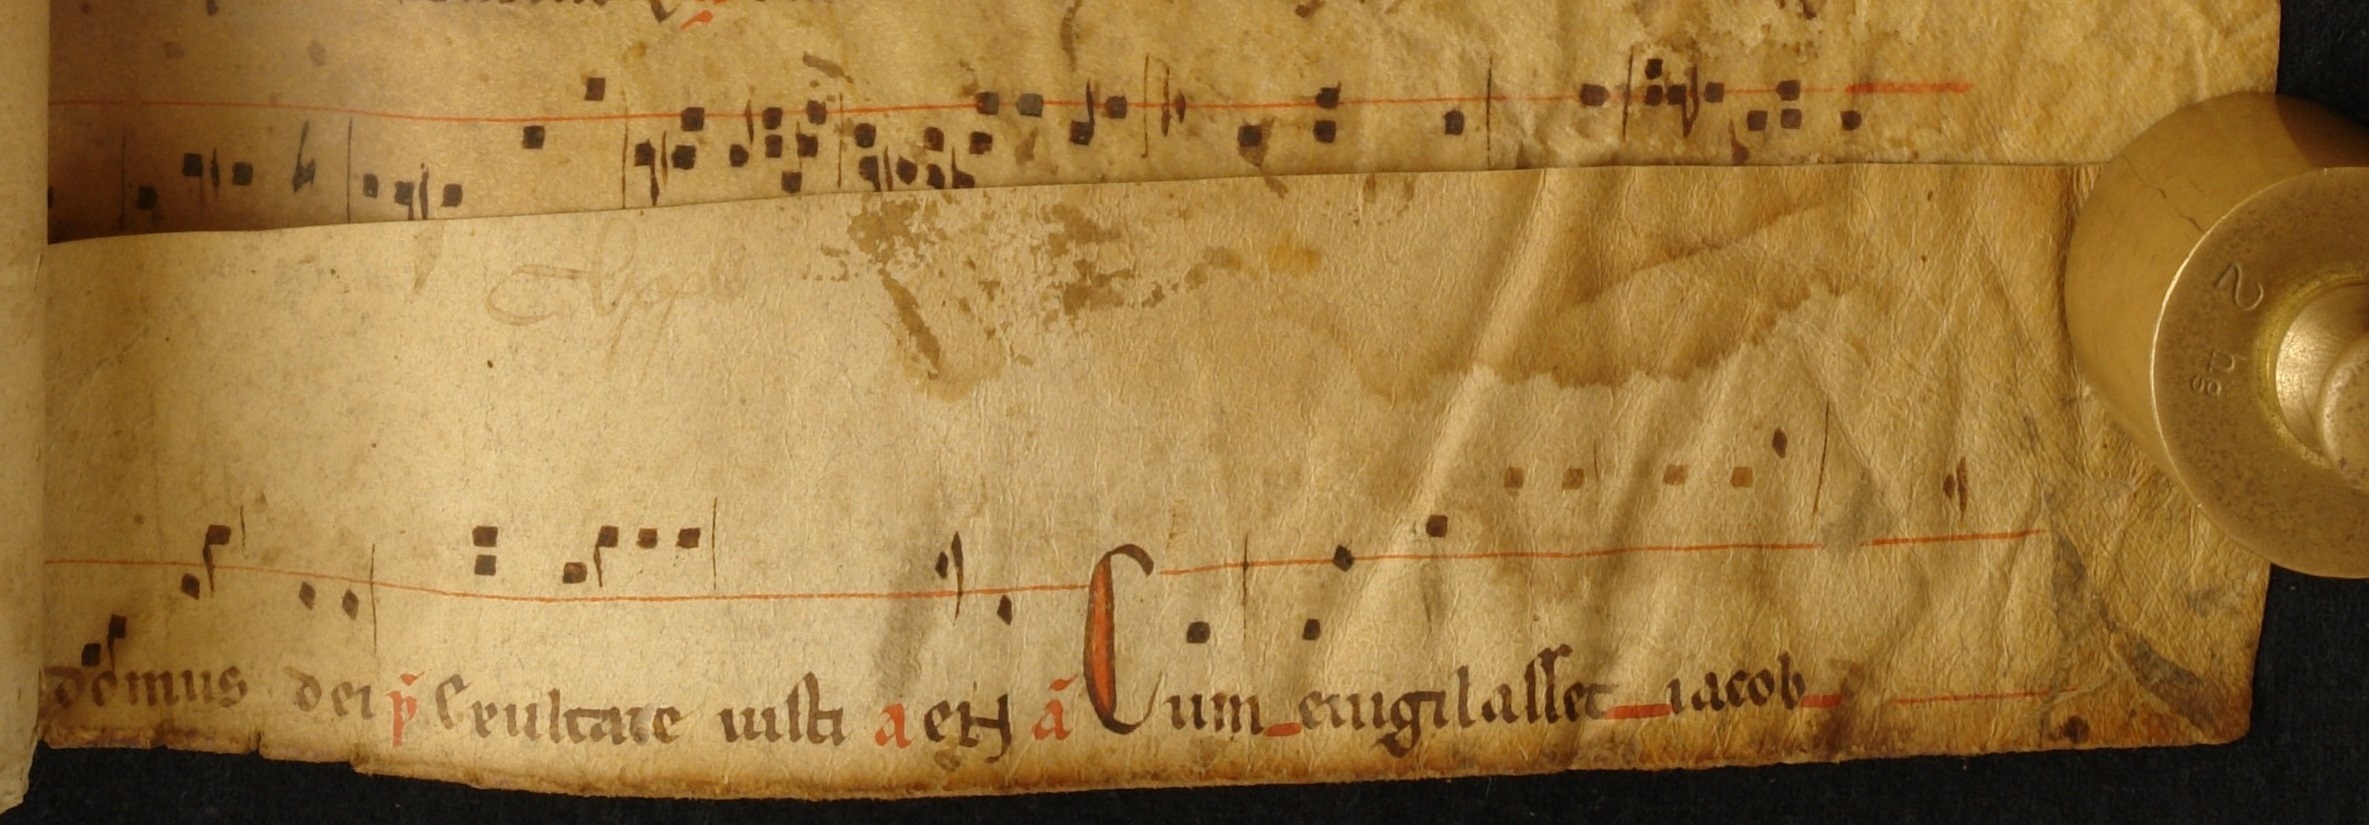 domus dei p̄ Exultate iusti aeH ā Cum euigilasset iacob
2
hg